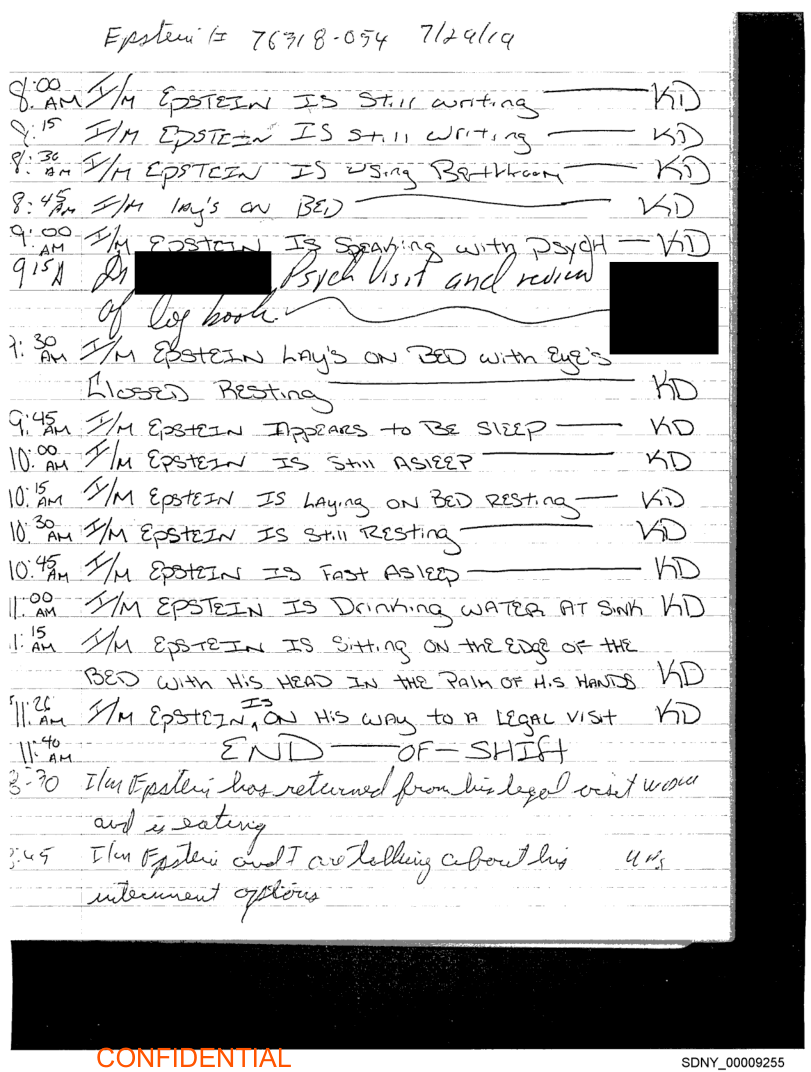 Epstein 76318-054 7/29/19
8:00 AM I/M EPSTEIN IS Still writing KD
8:15 I/M EPSTEIN IS still writing KD
8:30 AM I/M EPSTEIN IS using Bathroom KD
8:45 AM I/M lay's on BED KD
9:00 AM I/M EPSTEIN IS Speaking with PSYCH KD
915A Dr Psych Visit and review
of log book.
9:30 AM I/M EPSTEIN LAY'S ON BED with Eye's
Closed Resting KD
9:45 AM I/M EPSTEIN APPEARS to BE SLEEP KD
10:00 AM I/M EPSTEIN IS Still ASLEEP KD
10:15 AM I/M EPSTEIN IS LAying ON BED RESting KD
10:30 AM I/M EPSTEIN IS Still RESting KD
10:45 AM I/M EPSTEIN IS FAST ASLEEP KD
11:00 AM I/M EPSTEIN IS Drinking WATER AT SINK KD
11:15 AM I/M EPSTEIN IS Sitting ON the EDge OF THE
BED with His HEAD IN THE PAlM OF His HANDS KD
11:26 AM I/M EPSTEIN, IS ON His WAY to A LEGAL VISIT KD
11:40 AM END OF SHIFT
3:30 I/m Epstein has returned from his legal visit
and is eating
3:45 I/m Epstein and I are talking about his
internment options
CONFIDENTIAL
SDNY_00009255